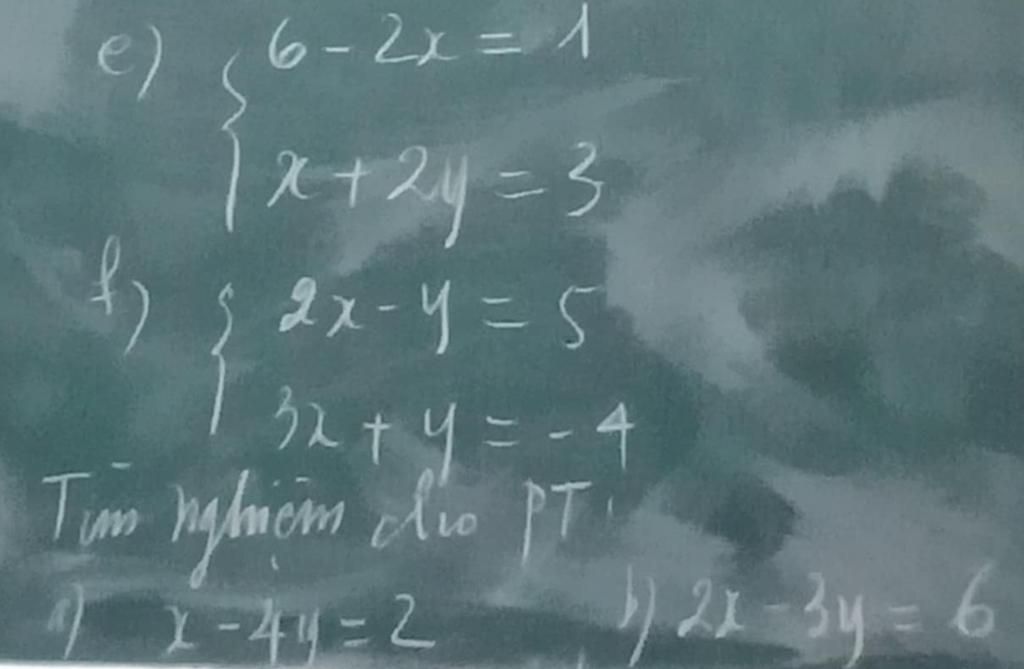 e) { 6 - 2x = 1
x + 2y = 3
f) { 2x - y = 5
3x + y = -4
Tìm nghiệm cho PT
a) x - 4y = 2 b) 2x - 3y = 6